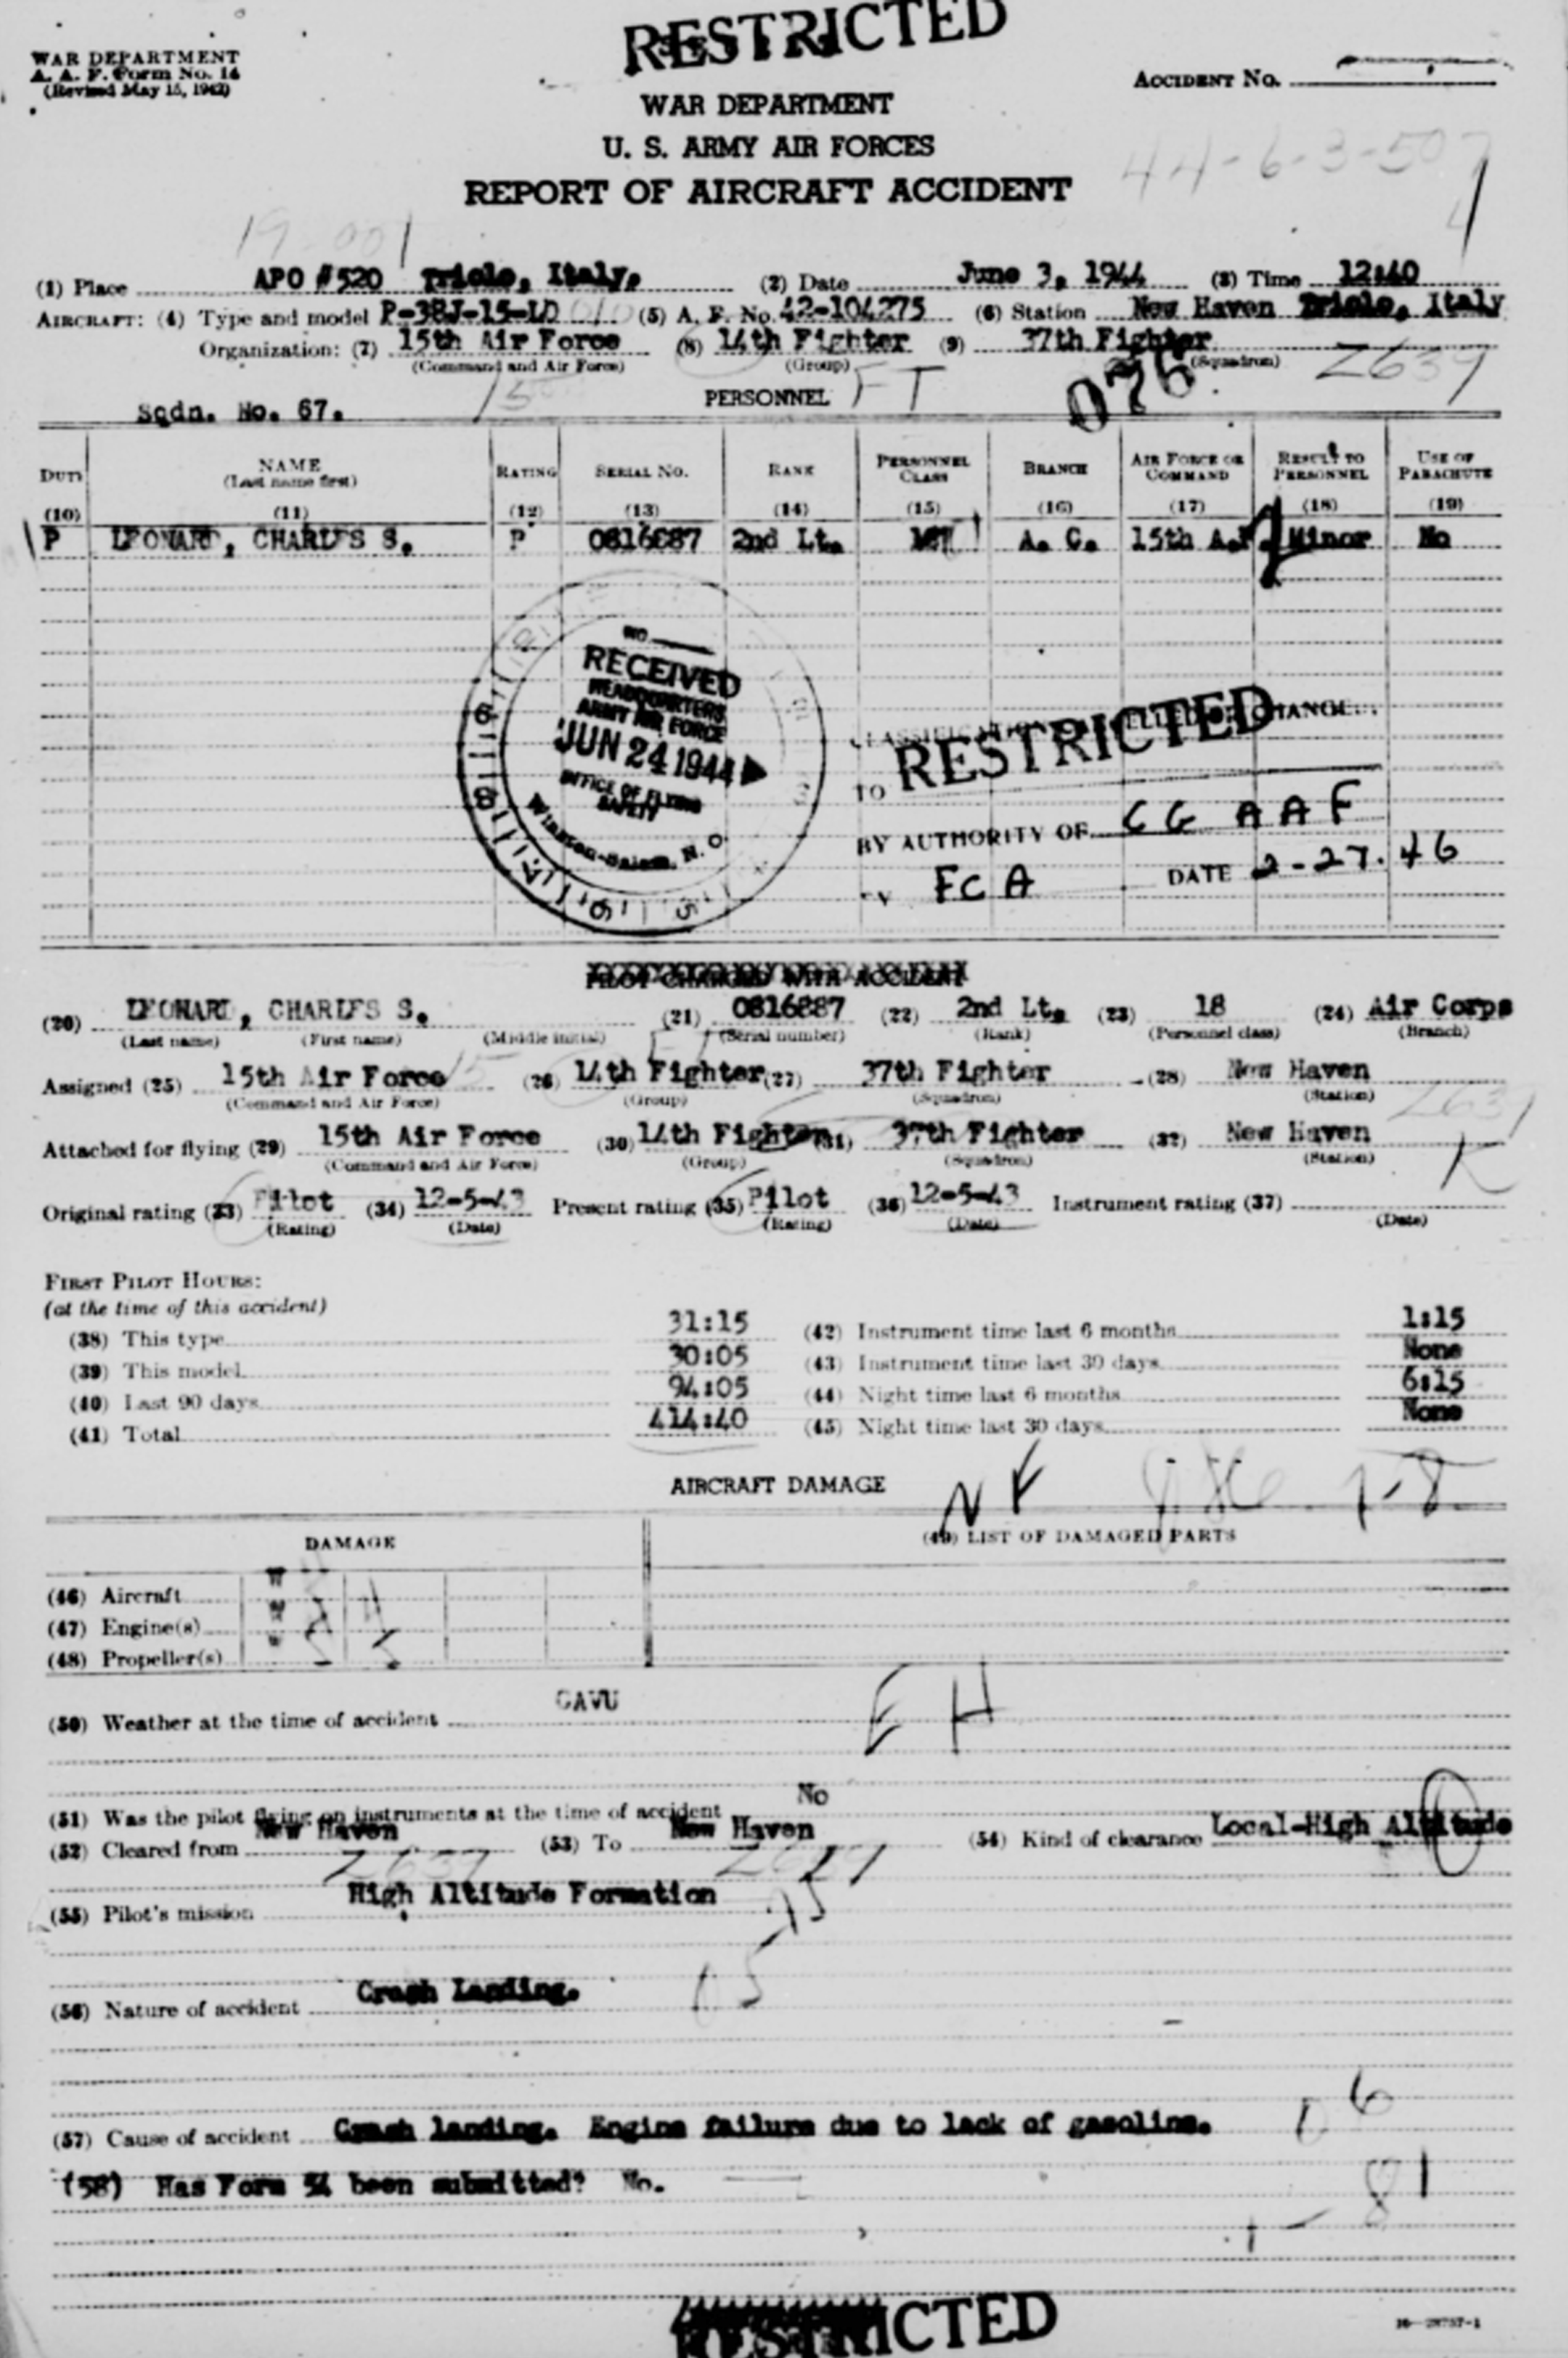 RESTRICTED
WAR DEPARTMENT
A. A. F. Form No. 14
(Revised May 15, 1942)
ACCIDENT NO.
WAR DEPARTMENT
U. S. ARMY AIR FORCES
REPORT OF AIRCRAFT ACCIDENT
44-6-3-507
19-001
(1) Place APO #520 Triolo, Italy. (2) Date June 3, 1944 (3) Time 12:40
AIRCRAFT: (4) Type and model P-38J-15-LO (5) A. F. No. 42-104275 (6) Station New Haven Triolo, Italy
Organization: (7) 15th Air Force (8) 14th Fighter (9) 37th Fighter
(Command and Air Force) (Group) (Squadron)
Sqdn. No. 67. 15 PERSONNEL FT 076 2637
DUTY NAME (Last name first) RATING SERIAL NO. RANK PERSONNEL CLASS BRANCH AIR FORCE OR COMMAND RESULT TO PERSONNEL USE OF PARACHUTE
(10) (11) (12) (13) (14) (15) (16) (17) (18) (19)
P LEONARD, CHARLES S. P 0816887 2nd Lt. A. C. 15th A.F. Minor No
NO.
RECEIVED
HEADQUARTERS
ARMY AIR FORCE
JUN 24 1944
OFFICE OF FLYING
SAFETY
Winston-Salem, N. C.
RESTRICTED
TO
BY AUTHORITY OF CG AAF
FCA DATE 2-27-46
PILOT CHARGED WITH ACCIDENT
(20) LEONARD, CHARLES S. (21) 0816887 (22) 2nd Lt. (23) 18 (24) Air Corps
(Last name) (First name) (Middle initial) (Serial number) (Rank) (Personnel class) (Branch)
Assigned (25) 15th Air Force (26) 14th Fighter (27) 37th Fighter (28) New Haven
(Command and Air Force) (Group) (Squadron) (Station)
Attached for flying (29) 15th Air Force (30) 14th Fighter (31) 37th Fighter (32) New Haven
(Command and Air Force) (Group) (Squadron) (Station)
K
Original rating (33) Pilot (34) 12-5-43 Present rating (35) Pilot (36) 12-5-43 Instrument rating (37)
(Rating) (Date) (Rating) (Date) (Date)
FIRST PILOT HOURS:
(at the time of this accident)
(38) This type 31:15 (42) Instrument time last 6 months 1:15
(39) This model 30:05 (43) Instrument time last 30 days None
(40) Last 90 days 94:05 (44) Night time last 6 months 6:15
(41) Total 414:40 (45) Night time last 30 days None
AIRCRAFT DAMAGE
DAMAGE (49) LIST OF DAMAGED PARTS
(46) Aircraft W
(47) Engine(s) W
(48) Propeller(s)
(50) Weather at the time of accident CAVU
E H
(51) Was the pilot flying on instruments at the time of accident No
(52) Cleared from New Haven (53) To New Haven (54) Kind of clearance Local-High Altitude
2637 2637
(55) Pilot's mission High Altitude Formation
(56) Nature of accident Crash Landing.
(57) Cause of accident Crash landing. Engine failure due to lack of gasoline.
(58) Has Form 54 been submitted? No.
81
RESTRICTED